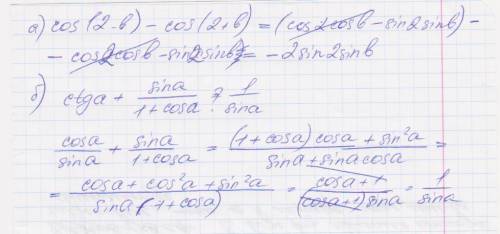 а) cos(2-b) - cos(2+b) = (cos2cosb - sin2sinb) -
- cos2cosb - sin2sinb) = -2sin2sinb
б) ctga + sina/(1+cosa) ? 1/sina
cosa/sina + sina/(1+cosa) = ((1+cosa)cosa + sin²a)/(sina + sinacosa) =
= (cosa + cos²a + sin²a)/(sina(1+cosa)) = (cosa+1)/((cosa+1)sina) = 1/sina